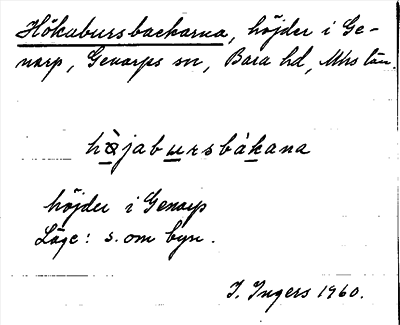 Hökabursbackarna, höjder i Ge-
narp, Genarps sn, Bara hd, Mhs län.
hàjabursbákana
höjder i Genarp
Läge: s. om byn.
I. Ingers 1960.